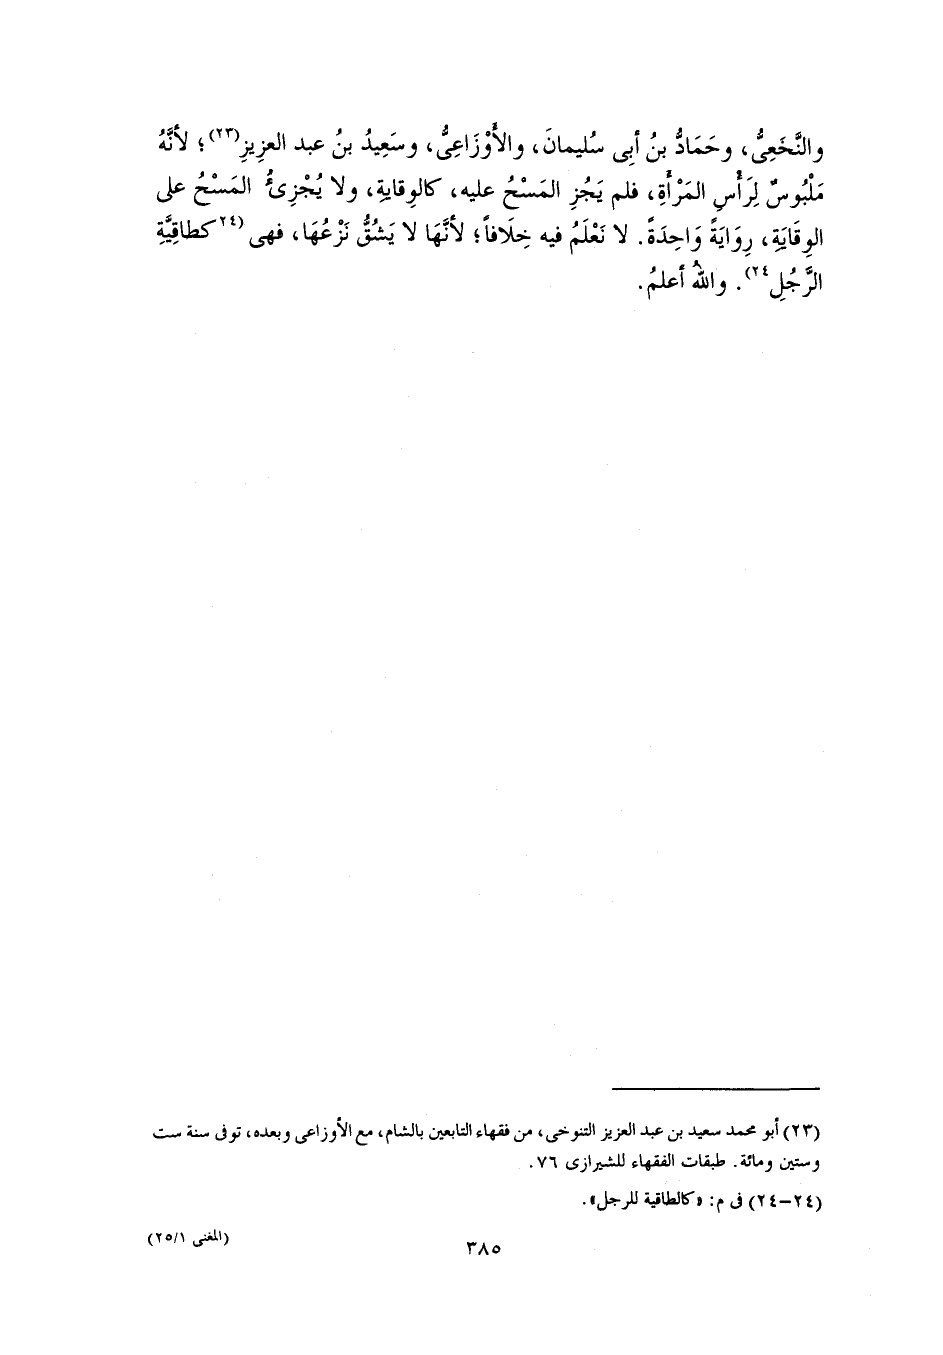 والنَّخَعِىُّ، وحَمَادُّ بنُ أبِى سُليمانَ، والأَوْزَاعِىُّ، وسَعِيدُ بنُ عبد العزِيزِ(٢٣)؛ لأنَّهُ
مَلْبُوسٌ لِرَأْسِ المَرْأَةِ، فلم يَجُزِ المَسْحُ عليه، كالوِقايةِ، ولا يُجْزِىُٔ المَسْحُ على
الوِقَايَةِ، رِوَايَةً وَاحِدَةً. لا نَعْلَمُ فيه خِلَافاً؛ لأنَّهَا لا يَشُقُّ نَزْعُهَا، فهى (٢٤كطاقِيَّةِ
الرَّجُلِ٢٤). واللهُ أعلمُ.
(٢٣) أبو محمد سعيد بن عبد العزيز التنوخى، من فقهاء التابعين بالشام، مع الأوزاعى وبعده، توفى سنة ست
وستين ومائة. طبقات الفقهاء للشيرازى ٧٦.
(٢٤-٢٤) فى م: «كالطاقية للرجل».
(المغنى ٢٥/١)
٣٨٥